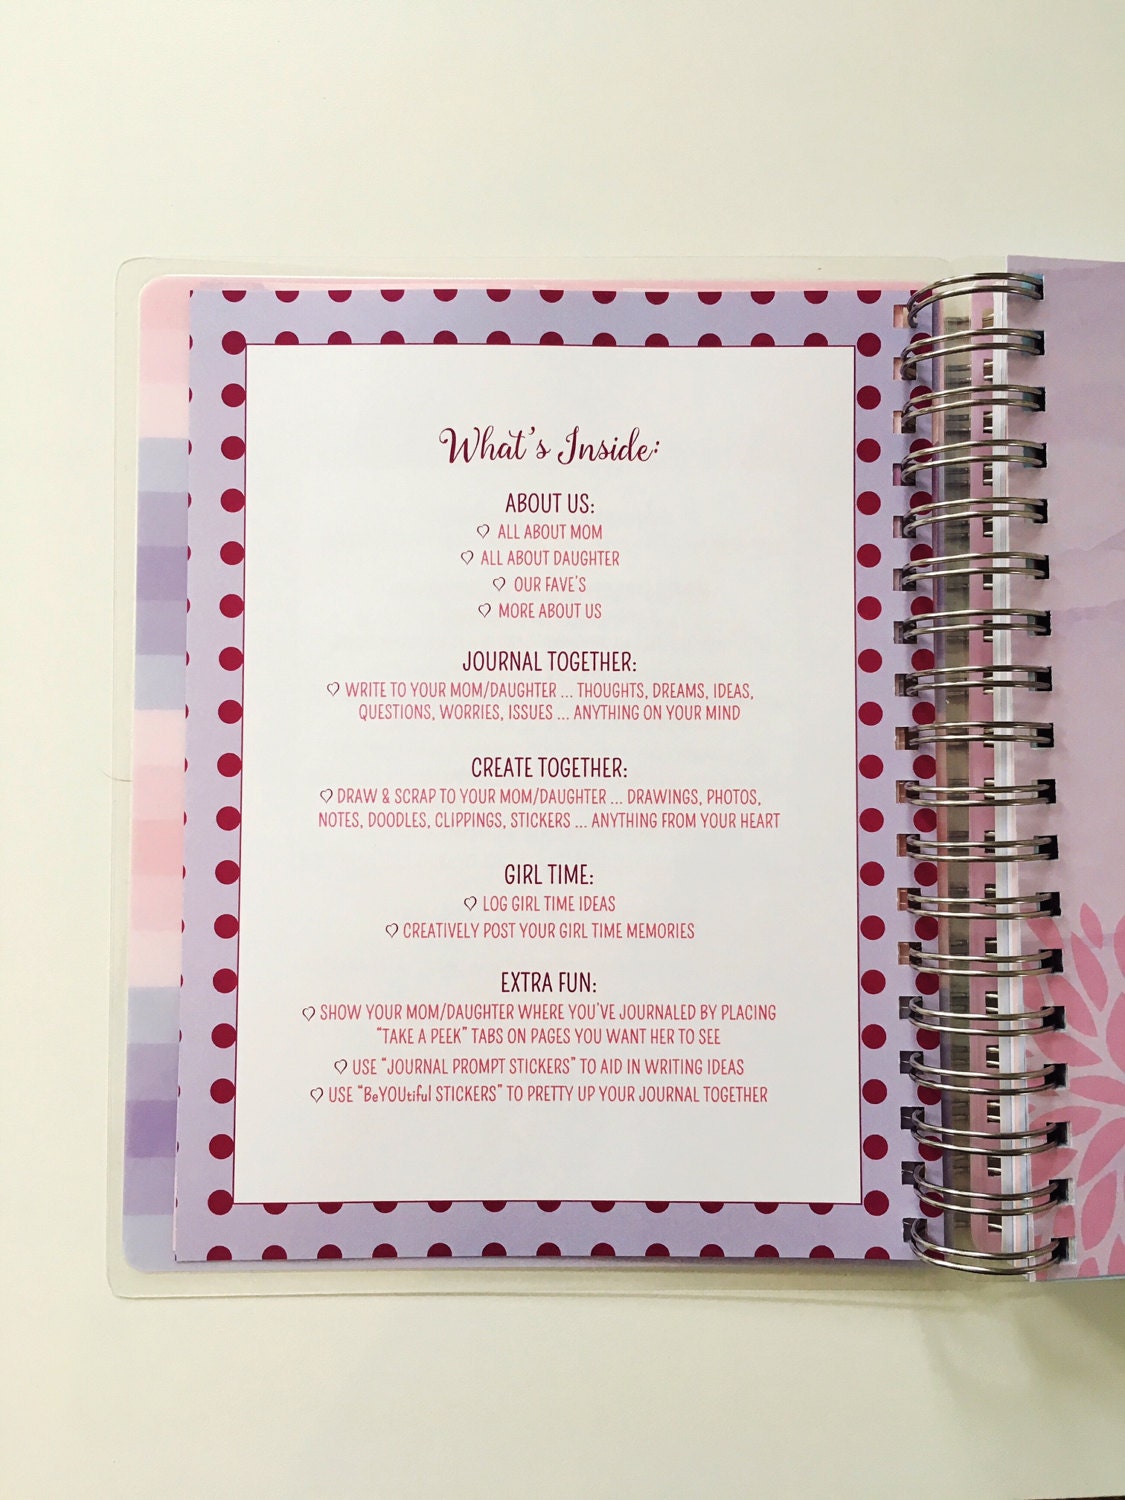 What's Inside:
ABOUT US:
ALL ABOUT MOM
ALL ABOUT DAUGHTER
OUR FAVE'S
MORE ABOUT US
JOURNAL TOGETHER:
WRITE TO YOUR MOM/DAUGHTER ... THOUGHTS, DREAMS, IDEAS,
QUESTIONS, WORRIES, ISSUES ... ANYTHING ON YOUR MIND
CREATE TOGETHER:
DRAW & SCRAP TO YOUR MOM/DAUGHTER ... DRAWINGS, PHOTOS,
NOTES, DOODLES, CLIPPINGS, STICKERS ... ANYTHING FROM YOUR HEART
GIRL TIME:
LOG GIRL TIME IDEAS
CREATIVELY POST YOUR GIRL TIME MEMORIES
EXTRA FUN:
SHOW YOUR MOM/DAUGHTER WHERE YOU'VE JOURNALED BY PLACING
"TAKE A PEEK" TABS ON PAGES YOU WANT HER TO SEE
USE "JOURNAL PROMPT STICKERS" TO AID IN WRITING IDEAS
USE "BeYOUtiful STICKERS" TO PRETTY UP YOUR JOURNAL TOGETHER